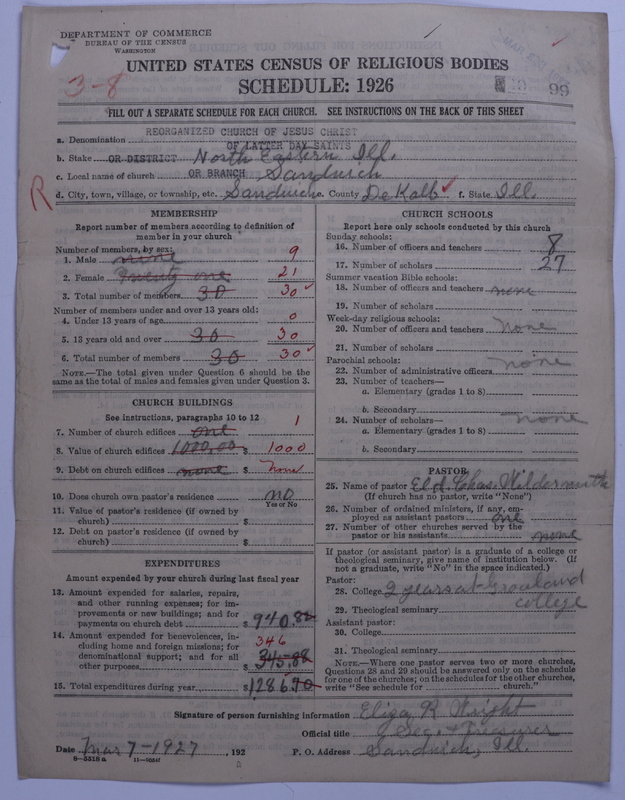 DEPARTMENT OF COMMERCE
BUREAU OF THE CENSUS
WASHINGTON
UNITED STATES CENSUS OF RELIGIOUS BODIES
3-8
SCHEDULE: 1926
99
FILL OUT A SEPARATE SCHEDULE FOR EACH CHURCH. SEE INSTRUCTIONS ON THE BACK OF THIS SHEET
a. Denomination REORGANIZED CHURCH OF JESUS CHRIST
OF LATTER DAY SAINTS
b. State OR DISTRICT North Eastern Ill.
c. Local name of church OR BRANCH Sandwich
R
d. City, town, village, or township, etc. Sandwich e. County De Kalb ✓ f. State Ill.
MEMBERSHIP
Report number of members according to definition of
member in your church
Number of members, by sex:
1. Male nine 9
2. Female Twenty one 21
3. Total number of members 30 30 ✓
Number of members under and over 13 years old:
4. Under 13 years of age 0
5. 13 years old and over 30 30
6. Total number of members 30 30 ✓
NOTE.—The total given under Question 6 should be the
same as the total of males and females given under Question 3.
CHURCH BUILDINGS
See instructions, paragraphs 10 to 12
7. Number of church edifices one 1
8. Value of church edifices 1,000,00 $ 1000
9. Debt on church edifices none $ none
10. Does church own pastor's residence no
Yes or No
11. Value of pastor's residence (if owned by
church) $
12. Debt on pastor's residence (if owned by
church) $
EXPENDITURES
Amount expended by your church during last fiscal year
13. Amount expended for salaries, repairs,
and other running expenses; for im-
provements or new buildings; and for
payments on church debt $ 940.82
14. Amount expended for benevolences, in- 346
cluding home and foreign missions; for
denominational support; and for all
other purposes $ 345.88
15. Total expenditures during year $ 1,286.70
CHURCH SCHOOLS
Report here only schools conducted by this church
Sunday schools:
16. Number of officers and teachers 8
17. Number of scholars 27
Summer vacation Bible schools:
18. Number of officers and teachers none
19. Number of scholars
Week-day religious schools:
20. Number of officers and teachers none
21. Number of scholars
Parochial schools:
22. Number of administrative officers none
23. Number of teachers—
a. Elementary (grades 1 to 8)
b. Secondary
24. Number of scholars— none
a. Elementary (grades 1 to 8)
b. Secondary
PASTOR
25. Name of pastor Eld. Chas. Wildermuth
(If church has no pastor, write "None")
26. Number of ordained ministers, if any, em-
ployed as assistant pastors one
27. Number of other churches served by the
pastor or his assistants none
If pastor (or assistant pastor) is a graduate of a college or
theological seminary, give name of institution below. (If
not a graduate, write "No" in the space indicated.)
Pastor:
28. College 2 years at Graceland
college
29. Theological seminary
Assistant pastor:
30. College
31. Theological seminary
NOTE.—Where one pastor serves two or more churches,
Questions 28 and 29 should be answered only on the schedule
for one of the churches; on the schedules for the other churches,
write "See schedule for church."
Signature of person furnishing information Eliza R Wright
Official title Sec. & Treasurer
Date Mar 7-1927, 192 P. O. Address Sandwich, Ill.
8-5518 a